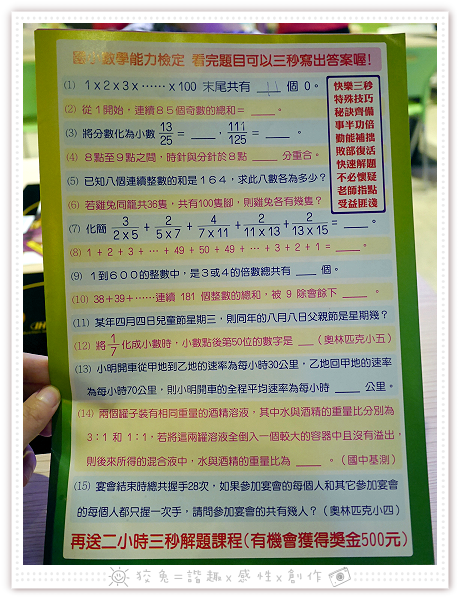 國小數學能力檢定 看完題目可以三秒寫出答案喔!
(1) 1x2x3x……x100 末尾共有 ___ 個 0。
(2) 從1開始,連續85個奇數的總和= ____。
(3) 將分數化為小數 13/25 = ____,111/125 = ____。
(4) 8點至9點之間,時針與分針於8點 ____ 分重合。
(5) 已知八個連續整數的和是164,求此八數各為多少?
(6) 若雞兔同籠共36隻,共有100隻腳,則雞兔各有幾隻?
(7) 化簡 3/2x5 + 2/5x7 + 4/7x11 + 2/11x13 + 2/13x15 = ____。
(8) 1+2+3+ … +49+50+49+ … +3+2+1= ____。
(9) 1到600的整數中,是3或4的倍數總共有 ___ 個。
(10) 38+39+……連續 181 個整數的總和,被 9 除會餘下 ____。
(11) 某年四月四日兒童節星期三,則同年的八月八日父親節是星期幾?
(12) 將 1/7 化成小數時,小數點後第50位的數字是 __(奧林匹克小五)
(13) 小明開車從甲地到乙地的速率為每小時30公里,乙地回甲地的速率
為每小時70公里,則小明開車的全程平均速率為每小時 ____ 公里。
(14) 兩個罐子裝有相同重量的酒精溶液,其中水與酒精的重量比分別為
3:1 和 1:1,若將這兩罐溶液全倒入一個較大的容器中且沒有溢出,
則後來所得的混合液中,水與酒精的重量比為 ____。(國中基測)
(15) 宴會結束時總共握手28次,如果參加宴會的每個人和其它參加宴會
的每個人都只握一次手,請問參加宴會的共有幾人?(奧林匹克小四)
再送二小時三秒解題課程(有機會獲得獎金500元)
快樂三秒
特殊技巧
秘訣齊備
事半功倍
勤能補拙
敗部復活
快速解題
不必懷疑
老師指點
受益匪淺
狡兔=諧趣x感性x創作